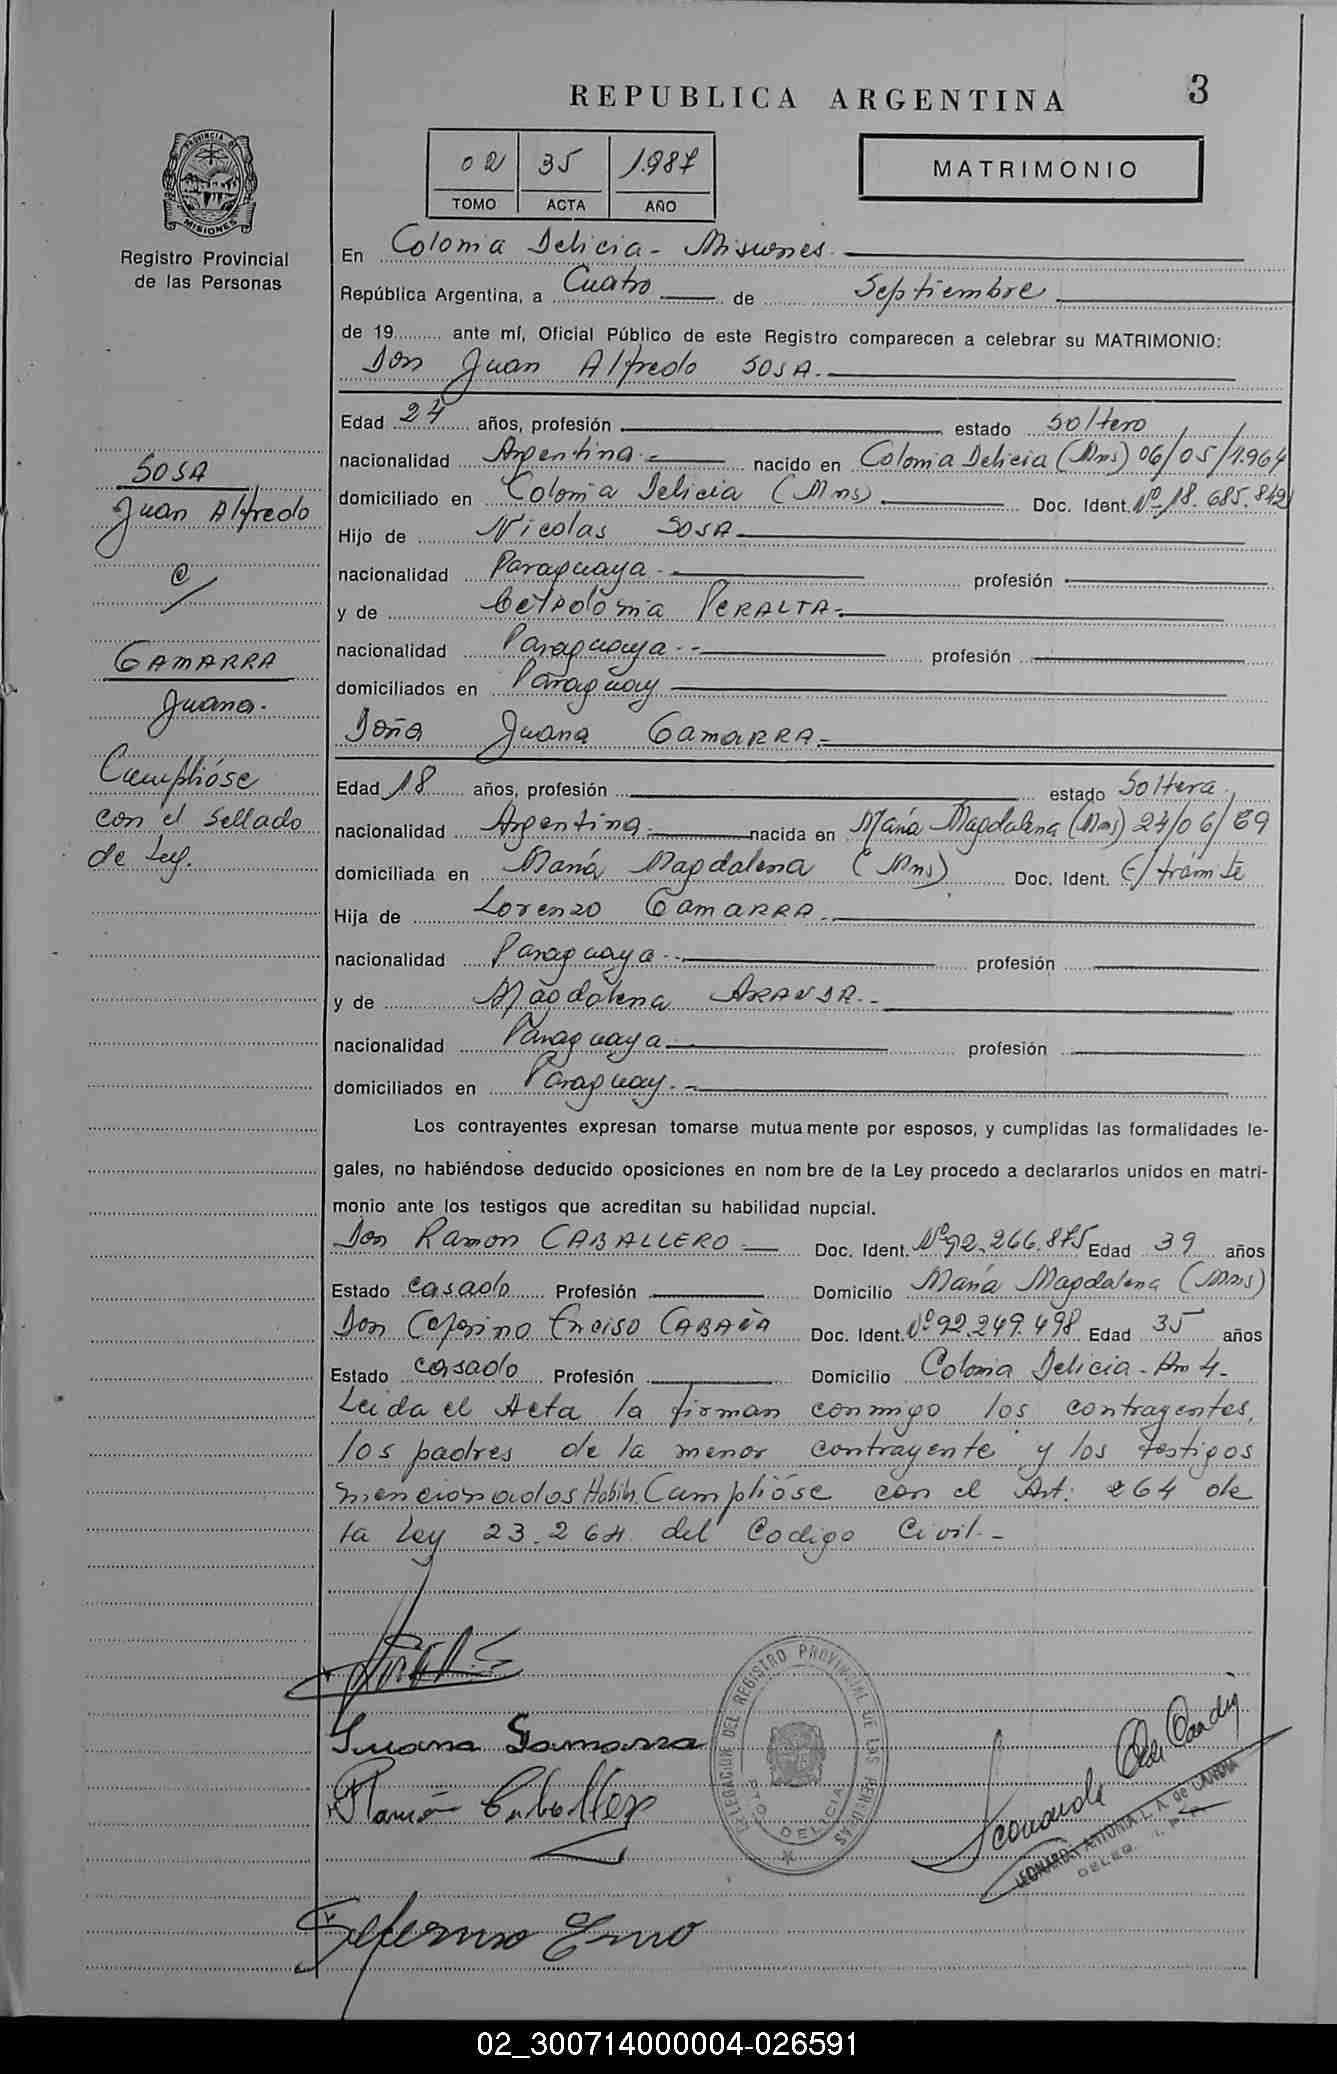 REPUBLICA ARGENTINA 3
PROVINCIA DE MISIONES
Registro Provincial
de las Personas
02 35 1.987
TOMO ACTA AÑO
MATRIMONIO
En Colonia Delicia - Misiones.
República Argentina, a Cuatro de Septiembre
de 19 ante mí, Oficial Público de este Registro comparecen a celebrar su MATRIMONIO:
Don Juan Alfredo SOSA.
Edad 24 años, profesión estado soltero
nacionalidad Argentina.- nacido en Colonia Delicia (Mns) 06/05/1.964
domiciliado en Colonia Delicia (Mns) Doc. Ident. Nº 18.685.842
Hijo de Nicolas SOSA
nacionalidad Paraguaya.- profesión
y de PERALTA.
nacionalidad Paraguaya.- profesión
domiciliados en Paraguay
Doña Juana GAMARRA.-
Edad 18 años, profesión estado Soltera.
nacionalidad Argentina.- nacida en María Magdalena (Mns) 24/06/69
domiciliada en María Magdalena (Mns) Doc. Ident. E/trámite
Hija de Lorenzo GAMARRA.
nacionalidad Paraguaya.- profesión
y de Magdalena ARANDA.-
nacionalidad Paraguaya profesión
domiciliados en Paraguay.-
Los contrayentes expresan tomarse mutuamente por esposos, y cumplidas las formalidades le-
gales, no habiéndose deducido oposiciones en nombre de la Ley procedo a declararlos unidos en matri-
monio ante los testigos que acreditan su habilidad nupcial.
Don Ramon CABALLERO Doc. Ident. Nº 92.266.875 Edad 39 años
Estado casado Profesión Domicilio María Magdalena (Mns)
Don Ceferino Enciso CABAÑA Doc. Ident. Nº 92.249.498 Edad 35 años
Estado casado Profesión Domicilio Colonia Delicia - Km 4-
Leida el Acta la firman conmigo los contrayentes,
los padres de la menor contrayente y los testigos
mencionados Habil. Cumplióse con el Art: 264 de
la Ley 23.264 del Codigo Civil.-
SOSA
Juan Alfredo
c/
GAMARRA
Juana.
Cumplióse
con el Sellado
de Ley.
Juana Gamarra
Ramón Caballero
DELEGACION DEL REGISTRO PROVINCIAL DE LAS PERSONAS
PTO. DELICIA
LEONARDA ANTONIA L. A. de CANDIA
02_300714000004-026591